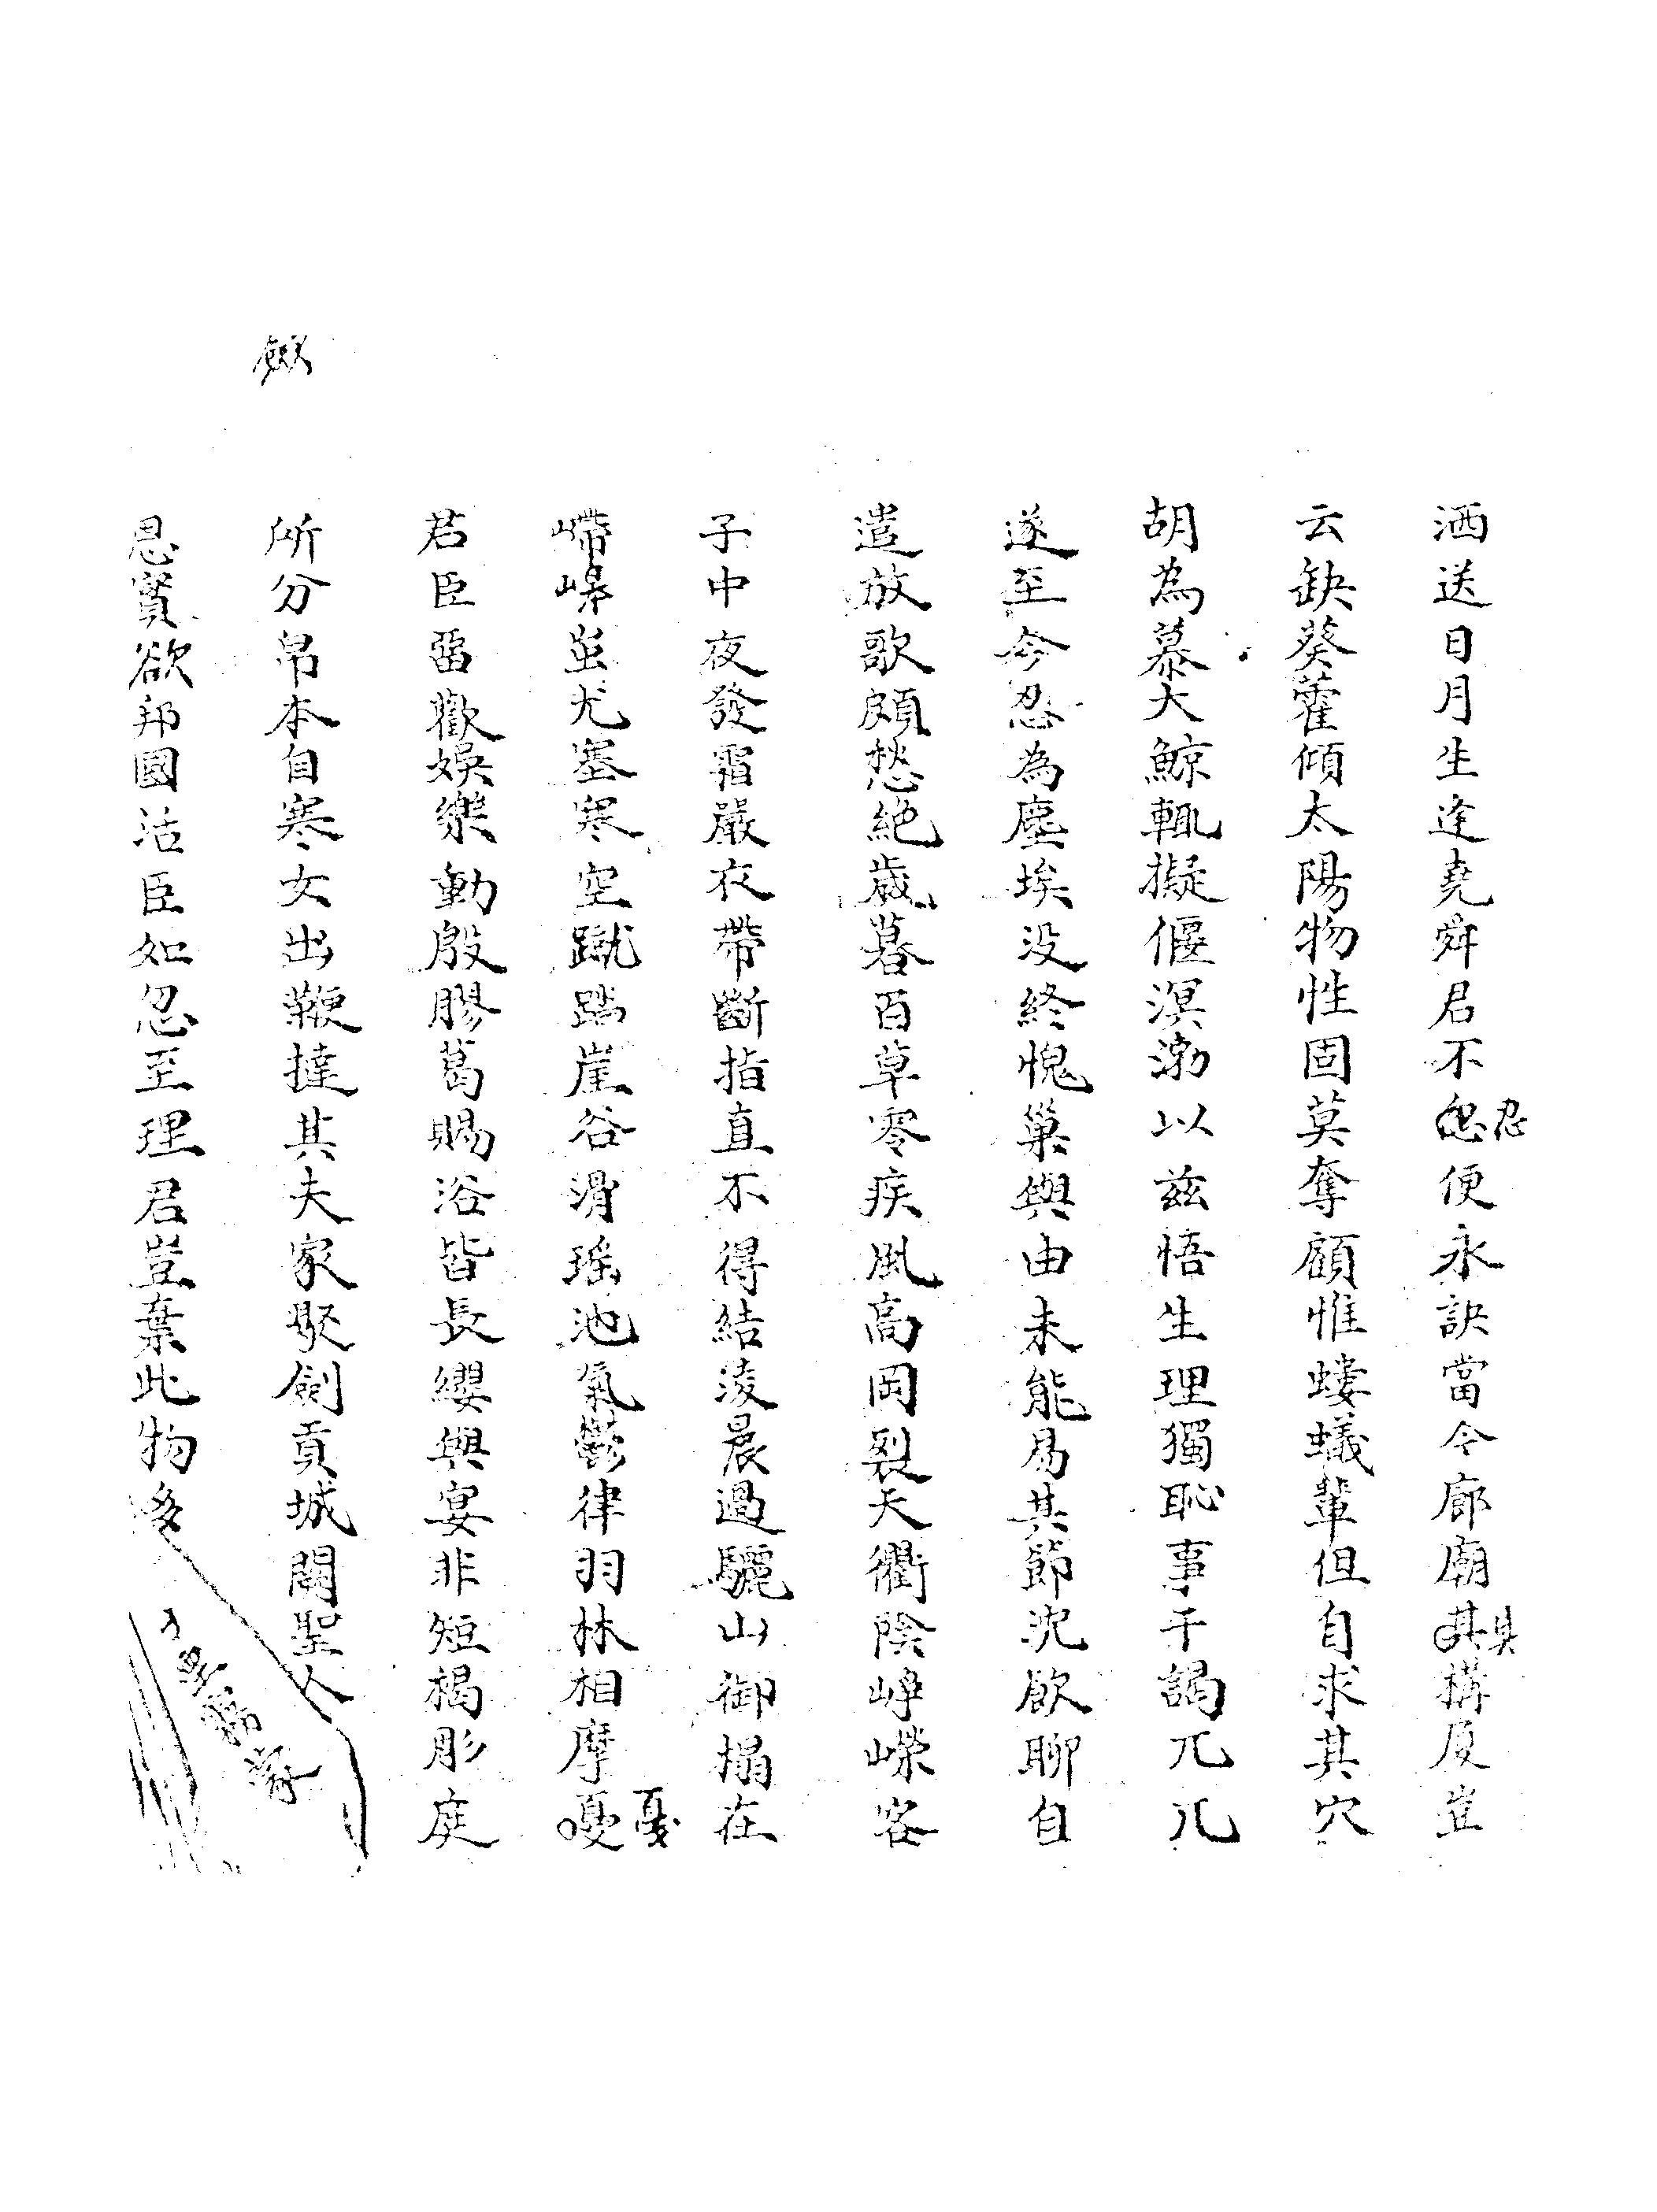 洒送日月生逢堯舜君不忽忍便永訣當今廊廟其具構厦豈
云缺葵藿傾太陽物性固莫奪顧惟螻蟻輩但自求其穴
胡為慕大鯨輒擬偃溟渤以兹悟生理獨恥事干謁兀兀
遂至今忍為塵埃没終愧巢與由未能易其節沈飲聊自
遣放歌頗愁絶歳暮百草零疾風高岡裂天衢陰崢嶸客
子中夜發霜嚴衣帶斷指直不得結淩晨過驪山御榻在
嵽嵲蚩尤塞寒空蹴踏崖谷滑瑶池氣鬱律羽林相摩憂戛
君臣留歡娯樂動殷膠葛賜浴皆長纓與宴非短褐彤庭
所分帛本自寒女出鞭撻其夫家聚劍貢城闕聖人
歛
恩實欲邦國活臣如忽至理君豈棄此物多